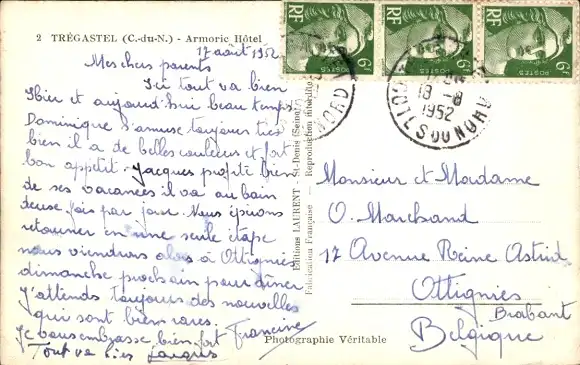 2 TRÉGASTEL (C.-du-N.) - Armoric Hôtel
17 août 1952
Mes chers parents
Ici tout va bien
Hier et aujourd'hui beau temps.
Dominique s'amuse toujours très
bien il a de belles couleurs et fort
bon appétit. Jacques profite bien
de ses vacances il va au bain
deux fois par jour. Nous
retourner en une seule étape
nous viendrons alors à Ottignies
dimanche prochain pour dîner
J'attends toujours des nouvelles
qui sont bien rares.
Je vous embrasse bien fort Francine
Tout va bien Jacques
Editions LAURENT - St-Denis (Seine)
Fabrication Française - Reproduction interdite
Photographie Véritable
RF 6f POSTES
RF 6f POSTES
RF 6f POSTES
18 -8
1952
DU NORD
Monsieur et Madame
O. Marchand
17 Avenue Reine Astrid
Ottignies
Brabant
Belgique